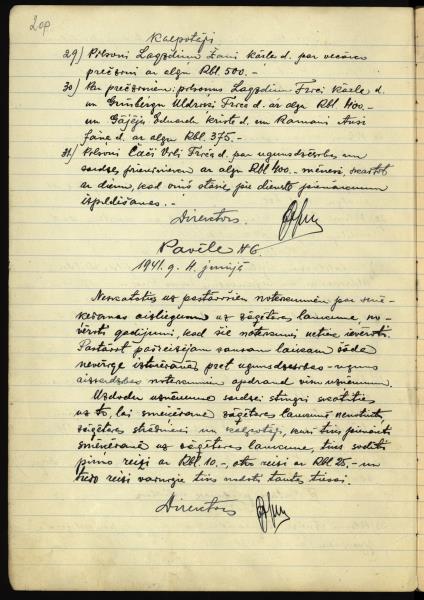 208
Kalpotāji
29) Pilsoni Lagzdiņu Žani Kārļa d. par vecāko
prečzini ar algu Rbl. 500.-
30) Par prečziņiem: pilsoņus Lagzdiņu Frici Kārļa d.
un Grünbergu Uldrichi Friča d. ar algu Rbl. 400.-
un Gājēju Eduardu Krista d. un Ramani Ansi
Jāņa d. ar algu Rbl. 375.-
31) Pilsoni Čači Vili Friča d. par ugunsdzēsības un
sardzes priekšnieku ar algu Rbl. 400.- mēnesī, skaitot
ar dienu, kad viņš stāsies pie dienesta pienākumu
izpildīšanas.-
Direktors
Pavēle № 6.
1941. g. 4. jūnijā
Neskatoties uz pastāvošiem noteikumiem par smē-
ķēšanas aizliegumu uz zāģētavas laukuma no-
vēroti gadījumi, kad šie noteikumi netiek ievēroti.
Pastāvot pašreizējam sausam laikam šāda
nevērīga izturēšanās pret ugunsdzēsības - uguns
aizsardzības noteikumiem apdraud visu uzņēmumu.
Uzdodu uzņēmuma sardzei stingri skatīties
uz to, lai smēķēšana zāģētavas laukumā nenotiktu,
zāģētavas strādnieki un kalpotāji, kuri tiks pieķerti
smēķēšanā uz zāģētavas laukuma, tiks sodīti
pirmo reizi ar Rbl. 10.-, otro reizi ar Rbl. 25.- un
trešo reizi vainīgie tiks nodoti tautas tiesai.
Direktors